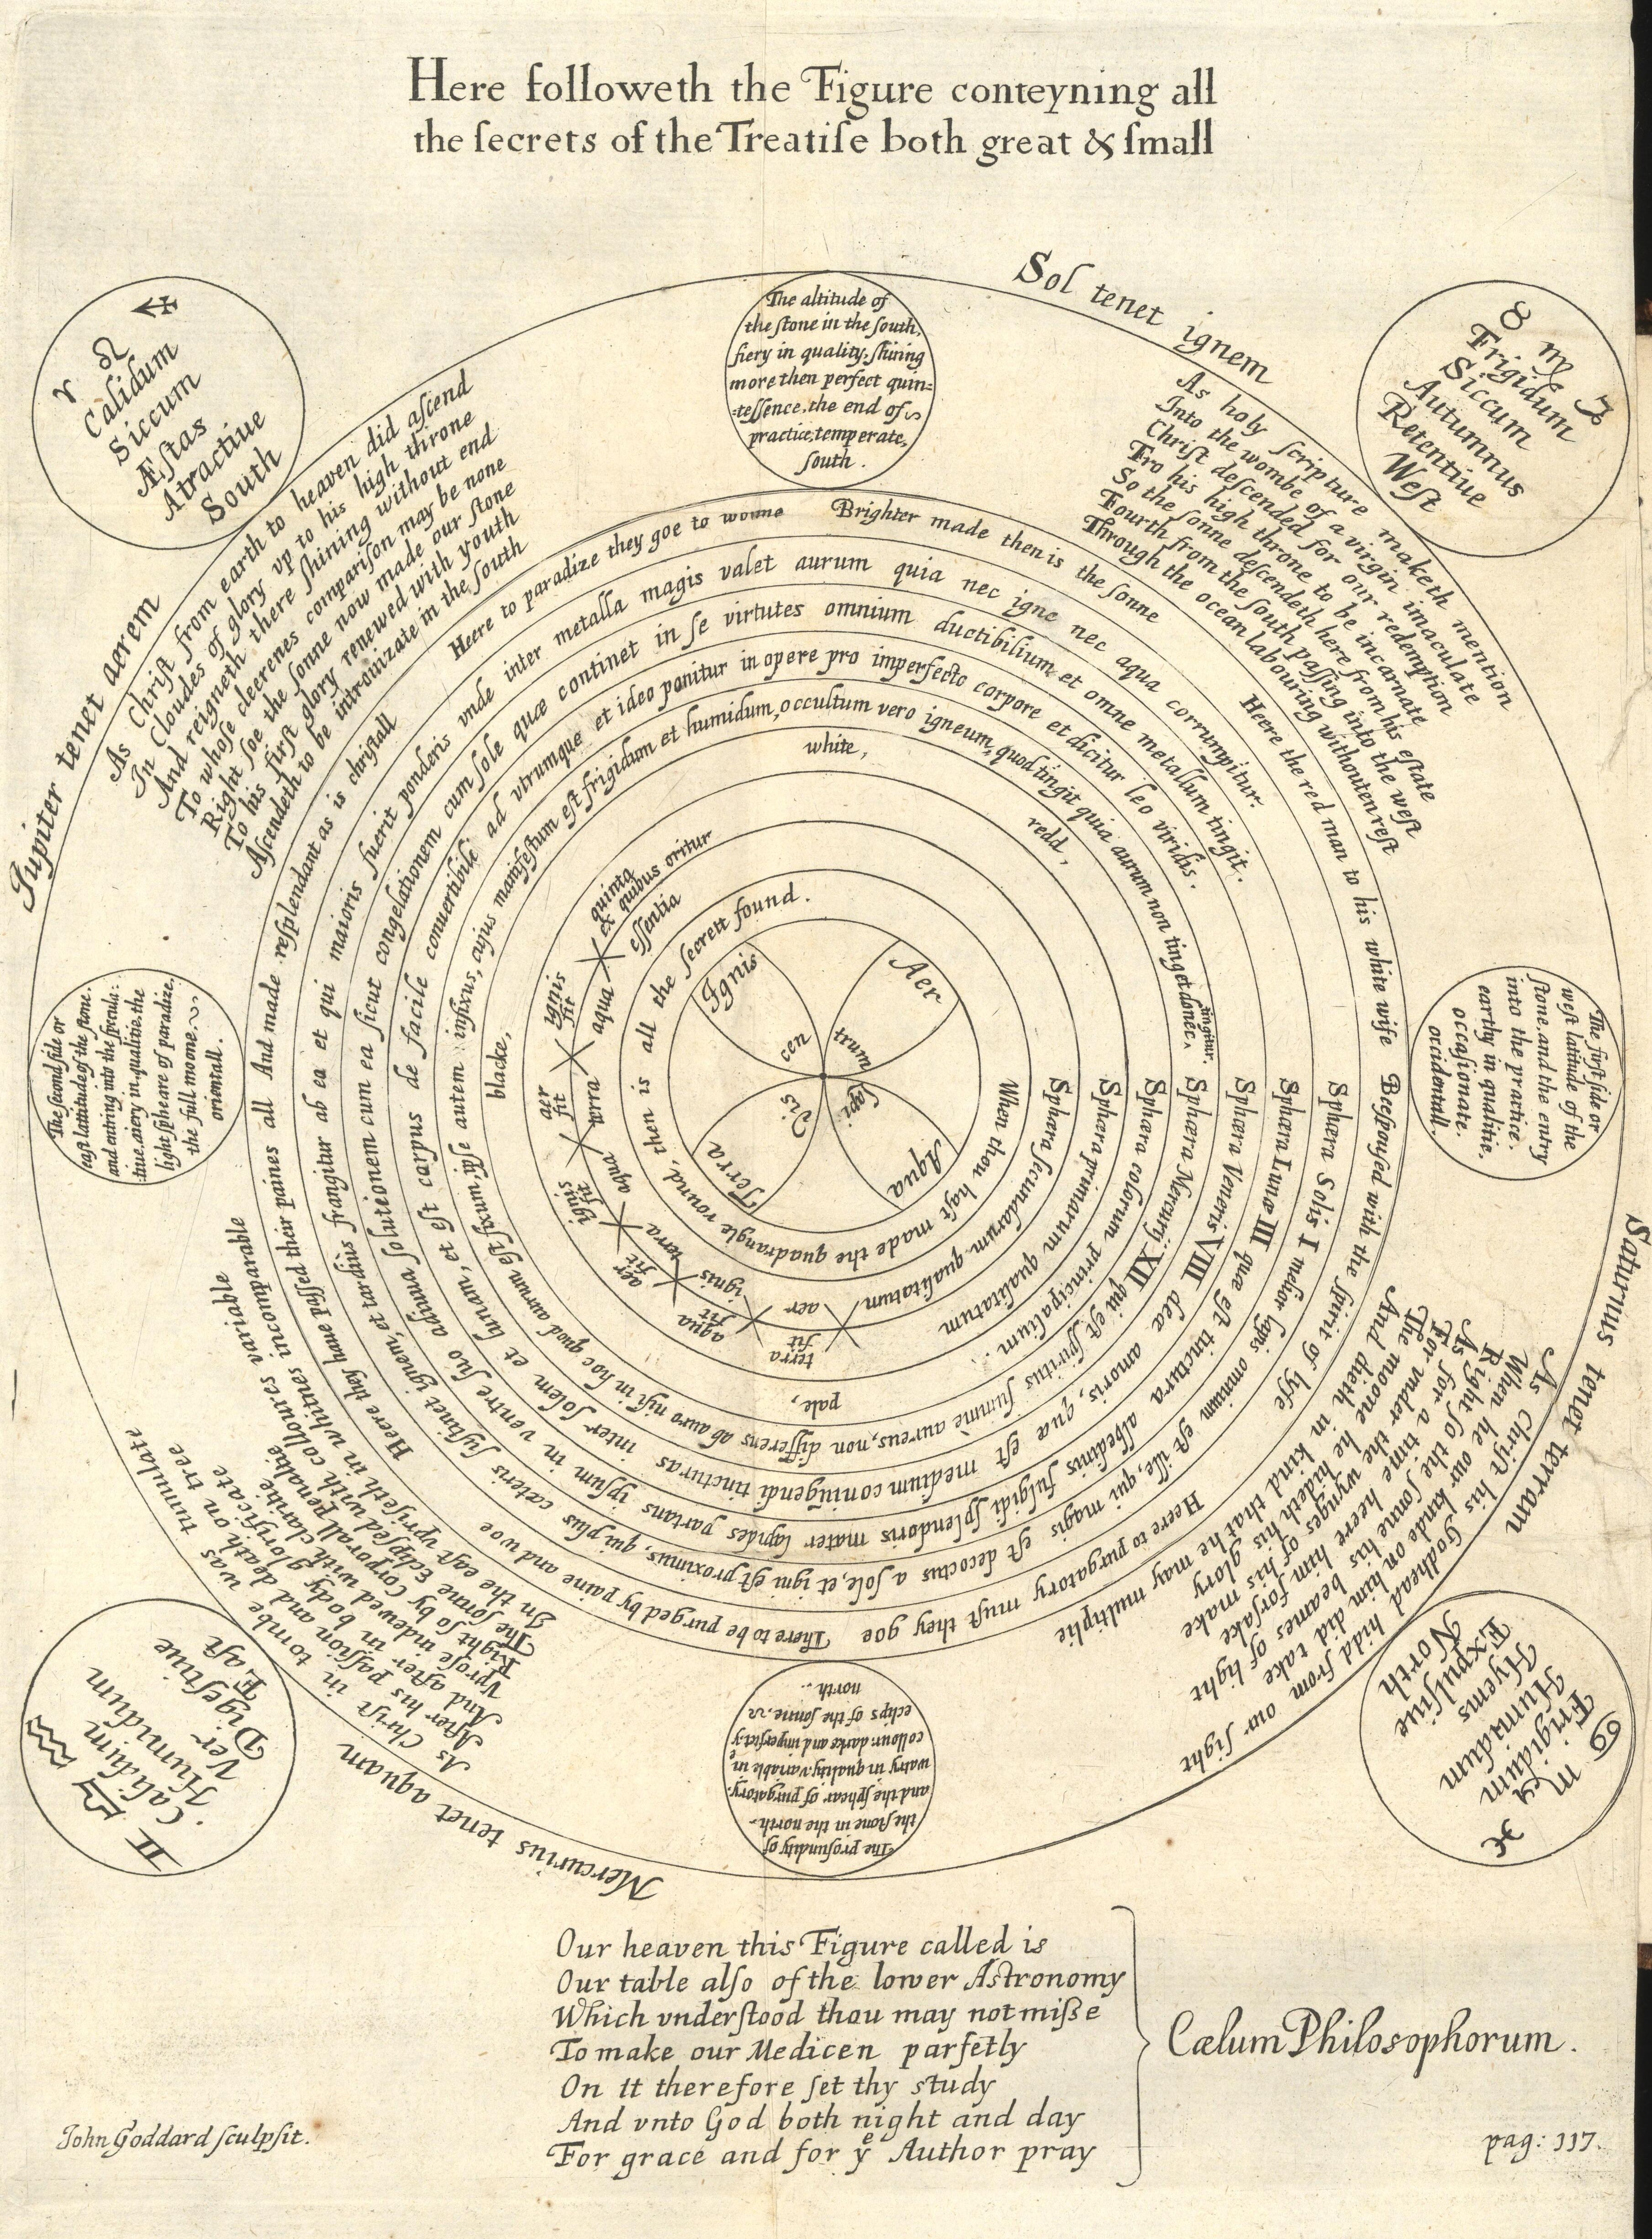 Here followeth the Figure conteyning all
the ſecrets of the Treatiſe both great & ſmall
Sol tenet ignem
Jupiter tenet aerem
Saturnus tenet terram
Mercurius tenet aquam
♈ ♌ ♐
Calidum
Siccum
Æſtas
Atractiue
South
♉ ♍ ♑
Frigidum
Siccum
Autumnus
Retentiue
Weſt
The altitude of
the ſtone in the ſouth,
fiery in quality, ſhining
more then perfect quin=
=teſſence, the end of
practice, temperate,
ſouth.
As Chriſt from earth to heaven did aſcend
In Cloudes of glory vp to his high throne
And reigneth there ſhining without end
To whoſe cleerenes compariſon may be none
Right ſoe the ſonne now made our ſtone
To his firſt glory renewed with youth
Aſcendeth to be intronizate in the ſouth
As holy ſcripture maketh mention
Into the wombe of a virgin imaculate
Chriſt deſcended for our redemption
Fro his high throne to be incarnate
So the ſonne deſcendeth here from his eſtate
Fourth from the ſouth paſſing into the weſt
Through the ocean labouring withouten reſt
The ſecond ſide or
eaſt lattitude of the ſtone.
and entring into the ſpecula:
:tiue. aiery in qualitie. the
light ſpheare of paradize.
the full moone.
orientall.
The firſt ſide or
weſt latitude of the
ſtone, and the entry
into the practice.
earthy in qualitie.
occaſionate.
occidentall.
As Chriſt his Godhead hidd from our ſight
When he our kinde on him did take
Right ſo the ſonne his beames of light
As for a time heere him forſake
For vnder the wynges of his make
The moone he hideth his glory
And dieth in kind that he may multiplie
As Chriſt in tombe was tumulate
After his paſſion and death on tree
And after in body glorificate
Vproſe indewed with claritie
Right ſo by Corporall penaltie
The ſonne Eclipſed with colloures variable
In the eaſt vpriſeth in whitnes incomparable
The profundity of
the ſtone in the north.
and the ſphear of purgatory.
watry in quality, variable in
collour: darke and imperfect.
eclips of the ſonne.
north.
♊ ♎ ♒
Calidum
Humidum
Ver
Digeſtiue
Eaſt
♋ ♏ ♓
Frigidum
Humidum
Hyems
Expulſiue
North
Here the red man to his white wife Beeſpouſed with the ſpirit of lyfe
Heere to purgatory muſt they goe There to be purged by paine and woe
Here they haue paſſed their paines all And made reſplendant as is chriſtall
Heere to paradize they goe to wonne Brighter made then is the ſonne
Sphæra Solis I melior lapis omnium eſt ille, qui magis eſt decoctus a ſole, et igni eſt proximus, qui plus cæteris ſuſtinet ignem, et tardius frangitur ab ea et qui maioris fuerit ponderis vnde inter metalla magis valet aurum quia nec igne nec aqua corrumpitur.
Sphæra Lunæ III quæ eſt tinctura albedinis fulgidi ſplendoris mater lapides partans ipſum in ventre ſuo adiuua ſolutionem cum ea ſicut congelationem cum ſole quæ continet in ſe virtutes omnium ductibilium et omne metallum tingit.
Sphæra Veneris VIII dea amoris, quæ eſt medium coniugendi tincturas inter ſolem et lunam, et eſt corpus de facile conuertibile ad vtrumque et ideo ponitur in opere pro imperfecto corpore et dicitur leo viridis.
Sphæra Mercurij XII qui eſt ſpiritus ſummè aureus, non differens ab auro niſi in hoc quod aurum eſt fixum, ipſe autem infixus, cujus manifeſtum eſt frigidum et humidum, occultum vero igneum, quod tingit quia aurum non tinget donec tingitur.
Sphæra colorum principalium. pale, blacke, white, redd,
Sphæra primarum qualitatum
Sphæra ſecundarum qualitatum
aer fit terra
ignis fit aqua
terra fit aer
aqua fit ignis
terra fit aer
aqua fit ignis
quinta
ex quibus oritur
eſſentia
When thou haſt made the quadrangle round, then is all the ſecrett found.
Ignis
Aer
Terra
Aqua
cen trum
lapi dis
Our heaven this Figure called is
Our table alſo of the lower Astronomy
Which vnderſtood thou may not miſse
To make our Medicen parfetly
On it therefore ſet thy study
And vnto God both night and day
For grace and for yͤ Author pray
Cælum Philosophorum.
John Goddard ſculpſit.
pag: 117.